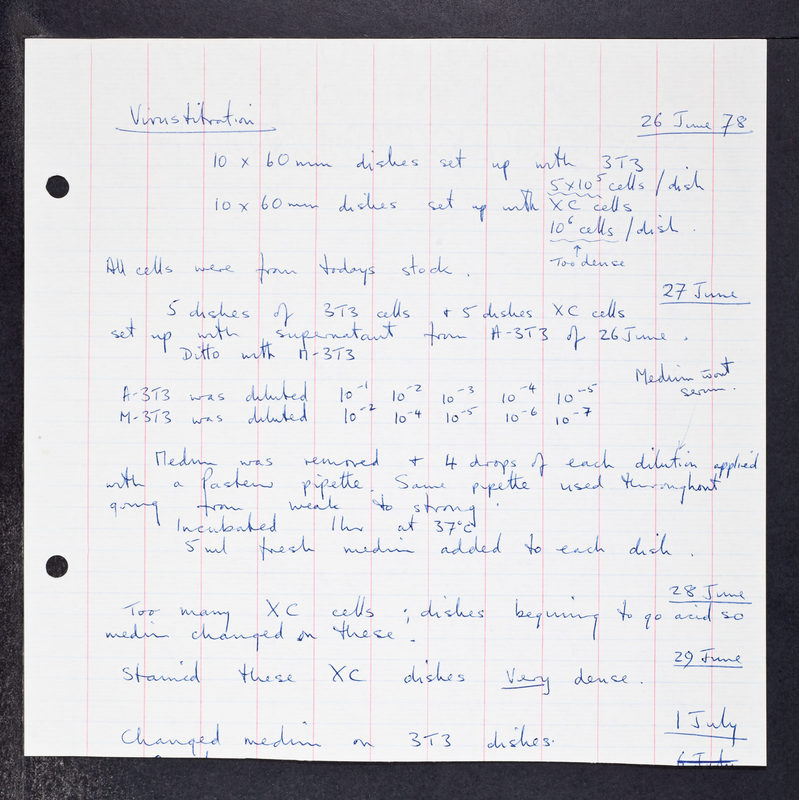 Virus titration
26 June 78
10 x 60 mm dishes set up with 3T3
5x10⁵ cells / dish
10 x 60 mm dishes set up with XC cells
10⁶ cells / dish .
↑
Too dense
All cells were from todays stock .
27 June
5 dishes of 3T3 cells + 5 dishes XC cells
set up with supernatant from A-3T3 of 26 June .
Ditto with M-3T3
Medium wout
serum.
A-3T3 was diluted 10⁻¹ 10⁻² 10⁻³ 10⁻⁴ 10⁻⁵
M-3T3 was diluted 10⁻² 10⁻⁴ 10⁻⁵ 10⁻⁶ 10⁻⁷
Medium was removed + 4 drops of each dilution applied
with a Pasteur pipette. Same pipette used throughout
going from weak to strong .
Incubated 1hr at 37°c
5 ml fresh medium added to each dish .
28 June
Too many XC cells ; dishes beginning to go acid so
medium changed on these .
29 June
Stained these XC dishes Very dense .
1 July
Changed medium on 3T3 dishes.
6 July